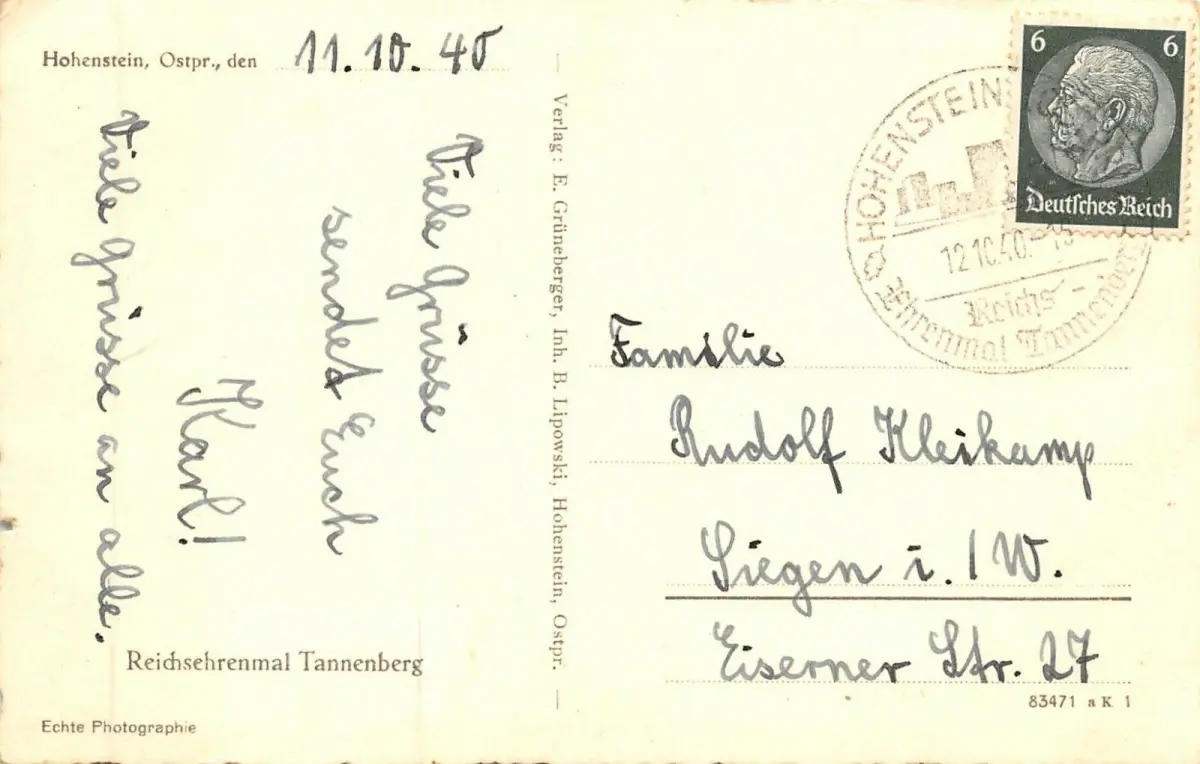 Hohenstein, Ostpr., den 11.10.40
Viele Grüsse
sendet Euch
Karl!
Viele Grüsse an alle.
Reichsehrenmal Tannenberg
Echte Photographie
Verlag: E. Grüneberger, Inh. B. Lipowski, Hohenstein, Ostpr.
6 6
Deutsches Reich
HOHENSTEIN
12.10.40.
Reichs-
Ehrenmal Tannenberg
Familie
Rudolf Kleikamp
Siegen i./W.
Eiserner Str. 27
83471 a K 1